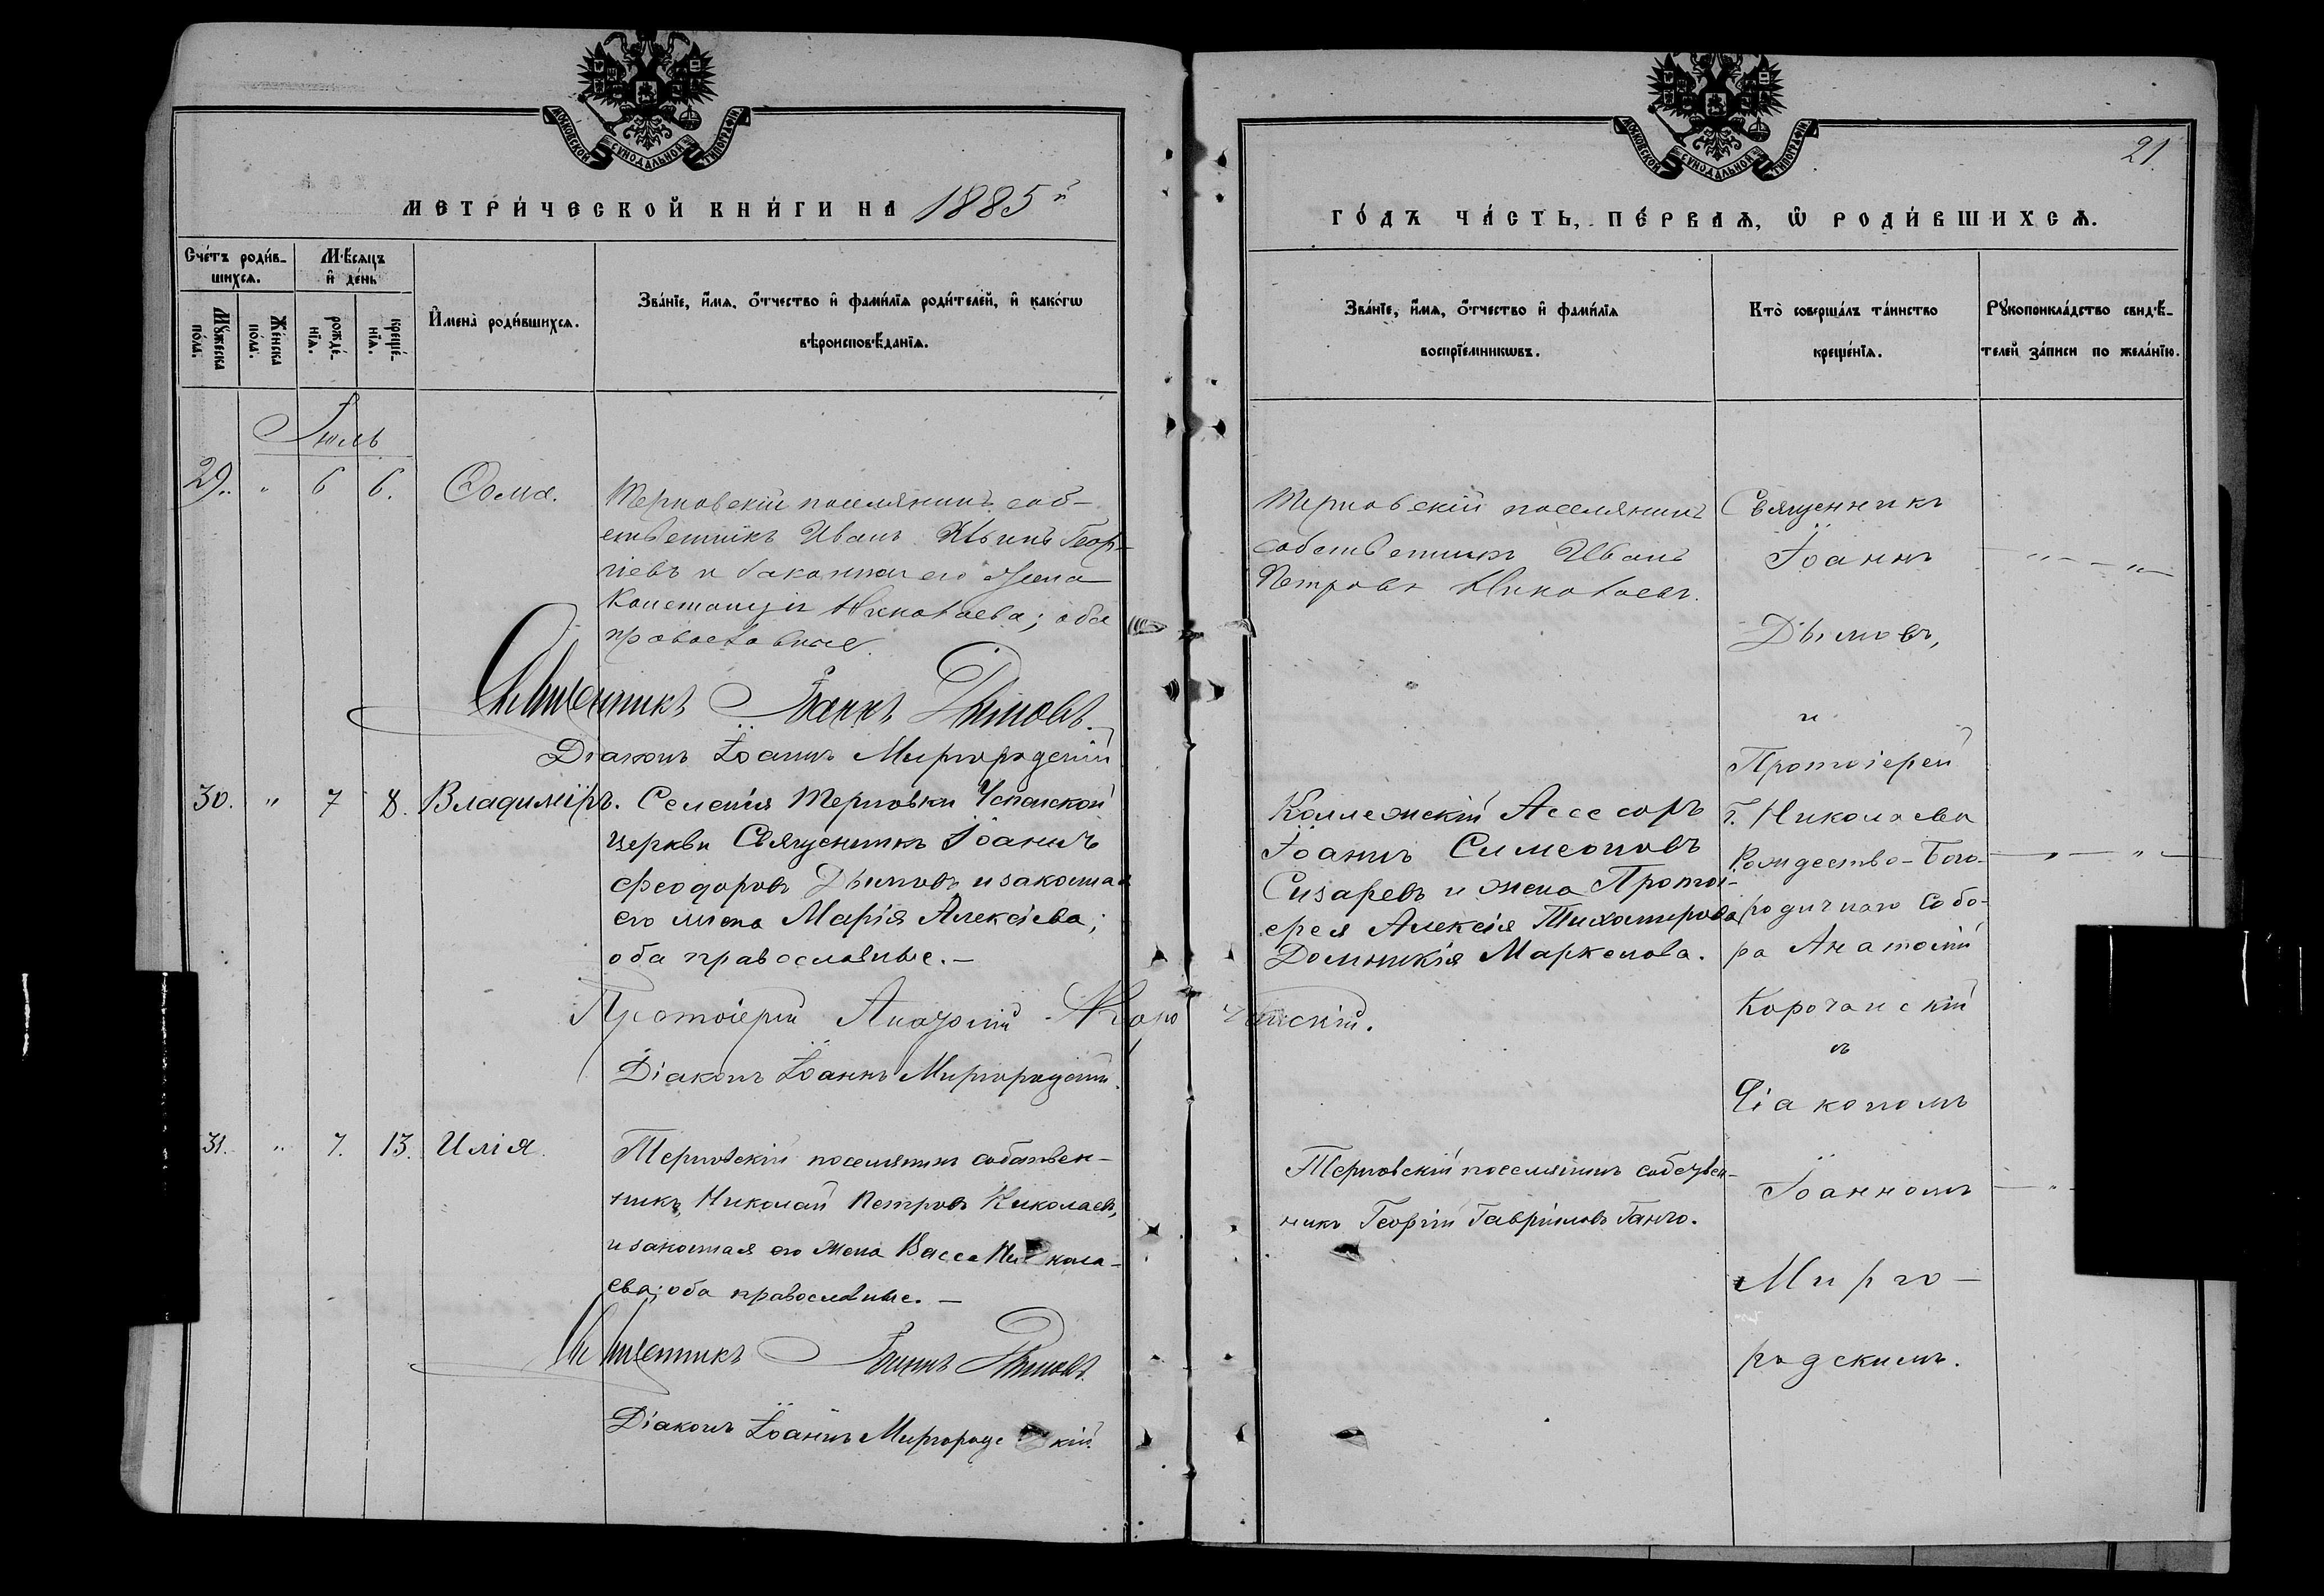 МОСКОВСКОЙ СѴНОДАЛЬНОЙ ТИПОГРАФІИ
МЕТРИ́ЧЕСКОЙ КНИ́ГИ НА 1885й
Сче́тъ роди́в-
шихсѧ.
Мѣ́сѧцъ
и҆ де́нь
Мꙋ́жеска
по́ла.
Же́нска
по́ла.
рожде́-
нїѧ.
креще́-
нїѧ.
И҆мена̀ роди́вшихсѧ.
Зва́нїе, и҆́мѧ, ѻ҆́тчество и҆ фами́лїѧ роди́телей, и҆ како́гѡ
вѣроисповѣ́данїѧ.
Іюль
29. " 6 6. Ѳома.
Терновскій поселянинъ соб-
ственникъ Иванъ Ильинъ Геор-
гіевъ и законная его жена
Констанція Николаева; оба
православные.
Священникъ Іоаннъ Дымовъ.
Діаконъ Іоаннъ Миргородскій
30. " 7 8. Владиміръ.
Селенія Терновки Успенской
церкви Священникъ Іоаннъ
Феодоровъ Дымовъ и законная
его жена Марія Алексіева;
оба православные.—
Протоіерей Анатолій Корочанскій.
Діаконъ Іоаннъ Миргородскій.
31. " 7. 13. Илія.
Терновскій поселянинъ собствен-
никъ Николай Петровъ Николаевъ,
и законная его жена Васса Никола-
ева; оба православные.—
Священникъ Іоаннъ Дымовъ.
Діаконъ Іоаннъ Миргородскій.
МОСКОВСКОЙ СѴНОДАЛЬНОЙ ТИПОГРАФІИ
21.
ГО́ДЪ ЧА́СТЬ, ПЕ́РВАѦ, Ѡ҆ РОДИ́ВШИХСѦ.
Зва́нїе, и҆́мѧ, ѻ҆́тчество и҆ фами́лїѧ
воспрїе́мникѡвъ.
Кто̀ соверша́лъ та́инство
креще́нїѧ.
Рꙋкоприкла́дство свидѣ́-
телей за́писи по жела́нїю.
Терновскій поселянинъ
собственникъ Иванъ
Петровъ Николаевъ.
Коллежскій Ассесоръ
Іоаннъ Симеоновъ
Сизаревъ и жена Протоі-
ерея Алексія Тихомирова
Домникія Маркелова.
Терновскій поселянинъ собствен-
никъ Георгій Гавріиловъ Ганчо.
Священникъ
Іоаннъ
Дымовъ,
и
Протоіерей
г. Николаева
Рождество-Бого-
родичнаго Собо-
ра Анатолій
Корочанскій
съ
Діакономъ
Іоанномъ
Мирго-
родскимъ.